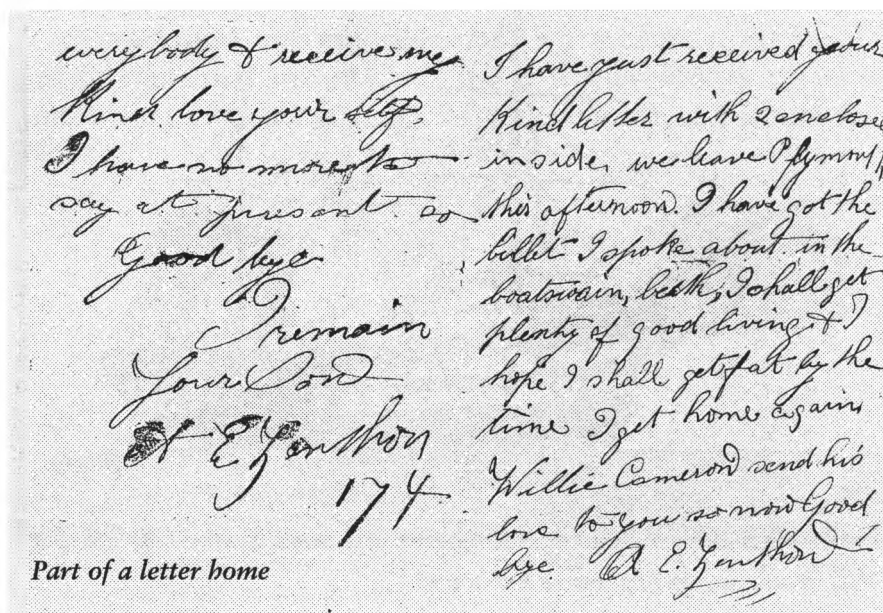 everybody & receive my
Kind love your self.
I have no more to
say at present so
Good bye
I remain
Your Son
A E Zenthon
174
I have just received your
Kind letter with 2 enclosed
inside, we leave Plymouth
this afternoon. I have got the
billet I spoke about in the
boatswain, berth, I shall get
plenty of good living & I
hope I shall get fat by the
time I get home again
Willie Cameron send his
love to you so now Good
bye. A E. Zenthon
Part of a letter home